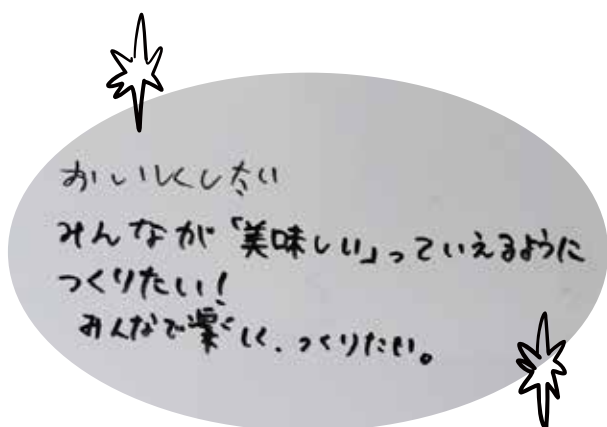 おいしくしたい
みんなが「美味しい」っていえるように
つくりたい!
みんなで楽しく、つくりたい。